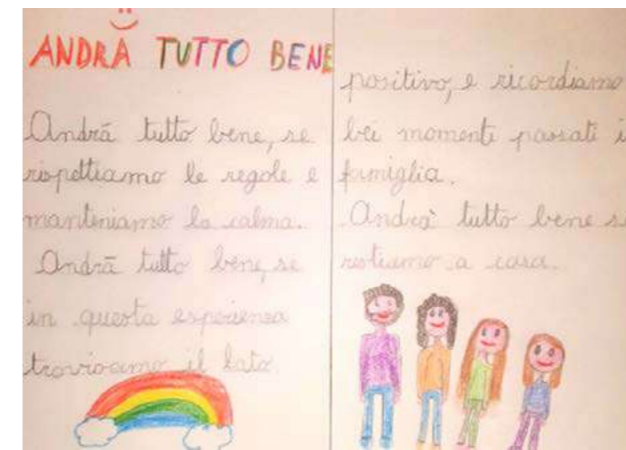 ANDRÀ TUTTO BENE
Andrà tutto bene, se
rispettiamo le regole e
manteniamo la calma.
Andrà tutto bene, se
in questa esperienza
troviamo il lato
positivo, e ricordiamo
bei momenti passati i
famiglia.
Andrà tutto bene s
restiamo a casa.